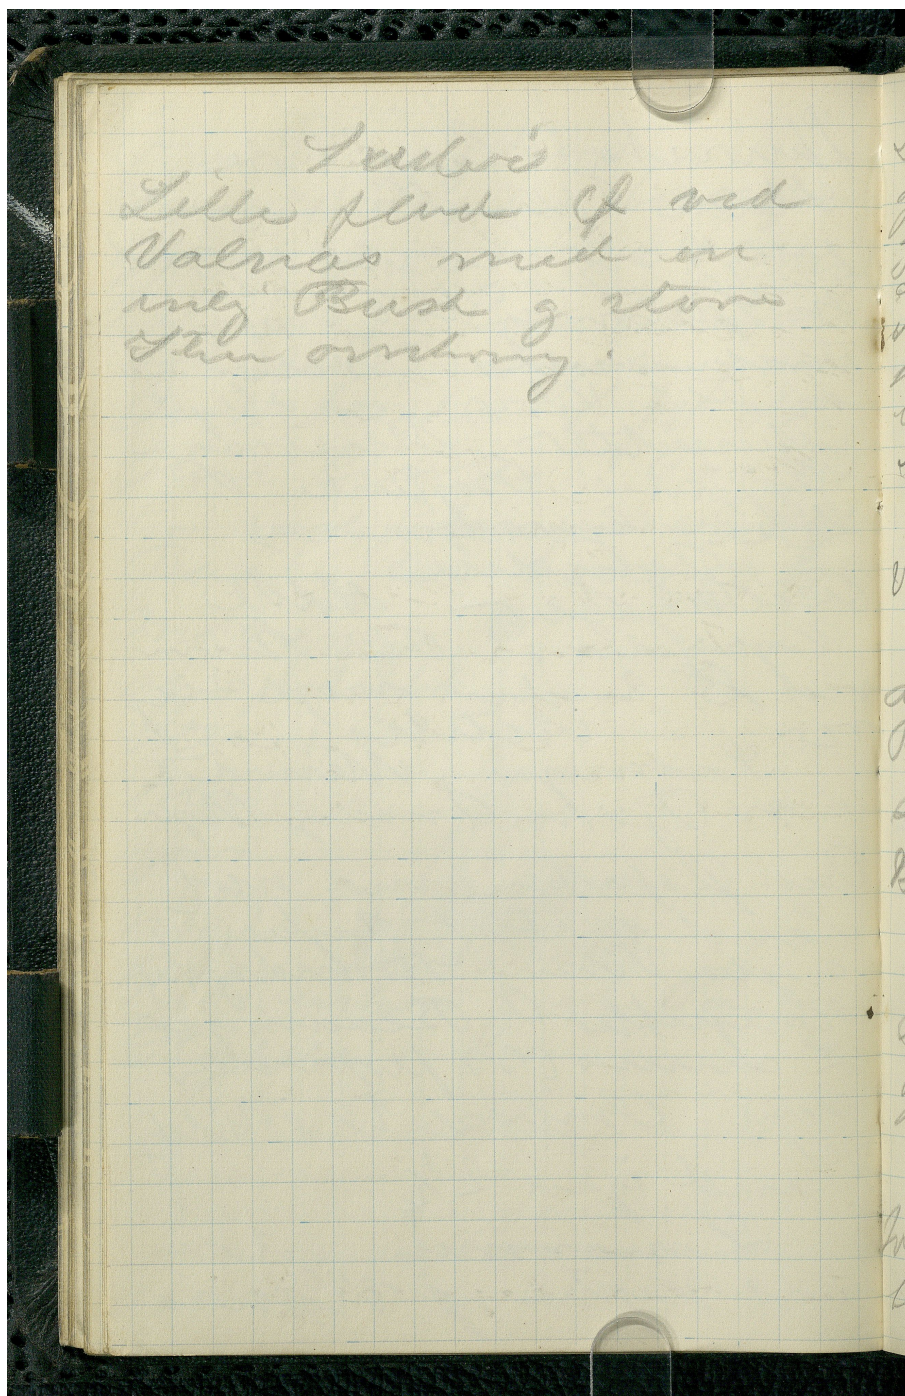 Lille flad Ø ved
Valnæs med en
enlig Busk og store
Sten omkring.